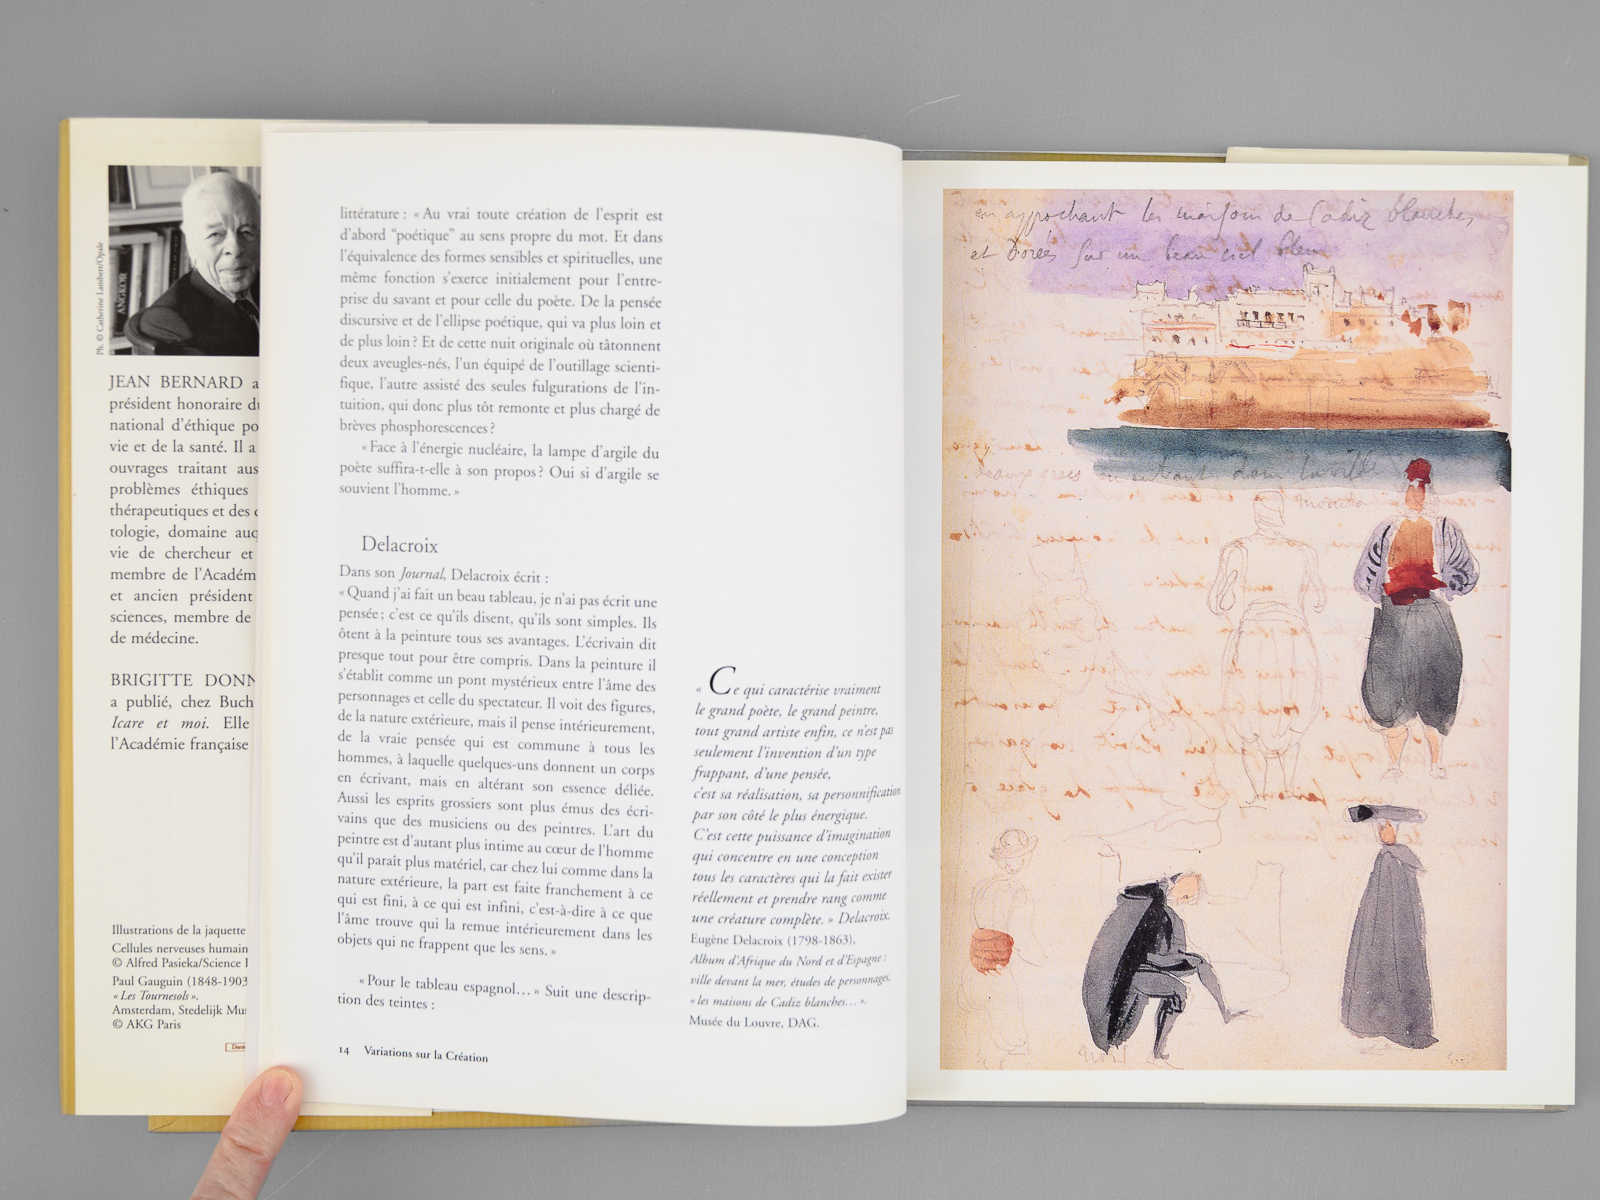 Ph. © Catherine Lambert/Opale
ANGKOR
JEAN BERNARD a
président honoraire du
national d'éthique po
vie et de la santé. Il a
ouvrages traitant aus
problèmes éthiques
thérapeutiques et des
tologie, domaine auq
vie de chercheur et
membre de l'Académ
et ancien président
sciences, membre de
de médecine.
BRIGITTE DONN
a publié, chez Buch
Icare et moi. Elle
l'Académie française
Illustrations de la jaquette
Cellules nerveuses humain
© Alfred Pasieka/Science
Paul Gauguin (1848-1903
« Les Tournesols ».
Amsterdam, Stedelijk Mu
© AKG Paris
littérature : « Au vrai toute création de l'esprit est
d'abord “poétique” au sens propre du mot. Et dans
l'équivalence des formes sensibles et spirituelles, une
même fonction s'exerce initialement pour l'entre-
prise du savant et pour celle du poète. De la pensée
discursive et de l'ellipse poétique, qui va plus loin et
de plus loin ? Et de cette nuit originale où tâtonnent
deux aveugles-nés, l'un équipé de l'outillage scienti-
fique, l'autre assisté des seules fulgurations de l'in-
tuition, qui donc plus tôt remonte et plus chargé de
brèves phosphorescences ?
« Face à l'énergie nucléaire, la lampe d'argile du
poète suffira-t-elle à son propos ? Oui si d'argile se
souvient l'homme. »
Delacroix
Dans son Journal, Delacroix écrit :
« Quand j'ai fait un beau tableau, je n'ai pas écrit une
pensée ; c'est ce qu'ils disent, qu'ils sont simples. Ils
ôtent à la peinture tous ses avantages. L'écrivain dit
presque tout pour être compris. Dans la peinture il
s'établit comme un pont mystérieux entre l'âme des
personnages et celle du spectateur. Il voit des figures,
de la nature extérieure, mais il pense intérieurement,
de la vraie pensée qui est commune à tous les
hommes, à laquelle quelques-uns donnent un corps
en écrivant, mais en altérant son essence déliée.
Aussi les esprits grossiers sont plus émus des écri-
vains que des musiciens ou des peintres. L'art du
peintre est d'autant plus intime au cœur de l'homme
qu'il paraît plus matériel, car chez lui comme dans la
nature extérieure, la part est faite franchement à ce
qui est fini, à ce qui est infini, c'est-à-dire à ce que
l'âme trouve qui la remue intérieurement dans les
objets qui ne frappent que les sens. »
« Pour le tableau espagnol… » Suit une descrip-
tion des teintes :
14 Variations sur la Création
« Ce qui caractérise vraiment
le grand poète, le grand peintre,
tout grand artiste enfin, ce n'est pas
seulement l'invention d'un type
frappant, d'une pensée,
c'est sa réalisation, sa personnification
par son côté le plus énergique.
C'est cette puissance d'imagination
qui concentre en une conception
tous les caractères qui la fait exister
réellement et prendre rang comme
une créature complète. » Delacroix.
Eugène Delacroix (1798-1863),
Album d'Afrique du Nord et d'Espagne :
ville devant la mer, études de personnages,
« les maisons de Cadiz blanches… ».
Musée du Louvre, DAG.
en approchant les maisons de Cadiz blanches,
et Dorées sur un beau ciel bleu
entrant dans la ville